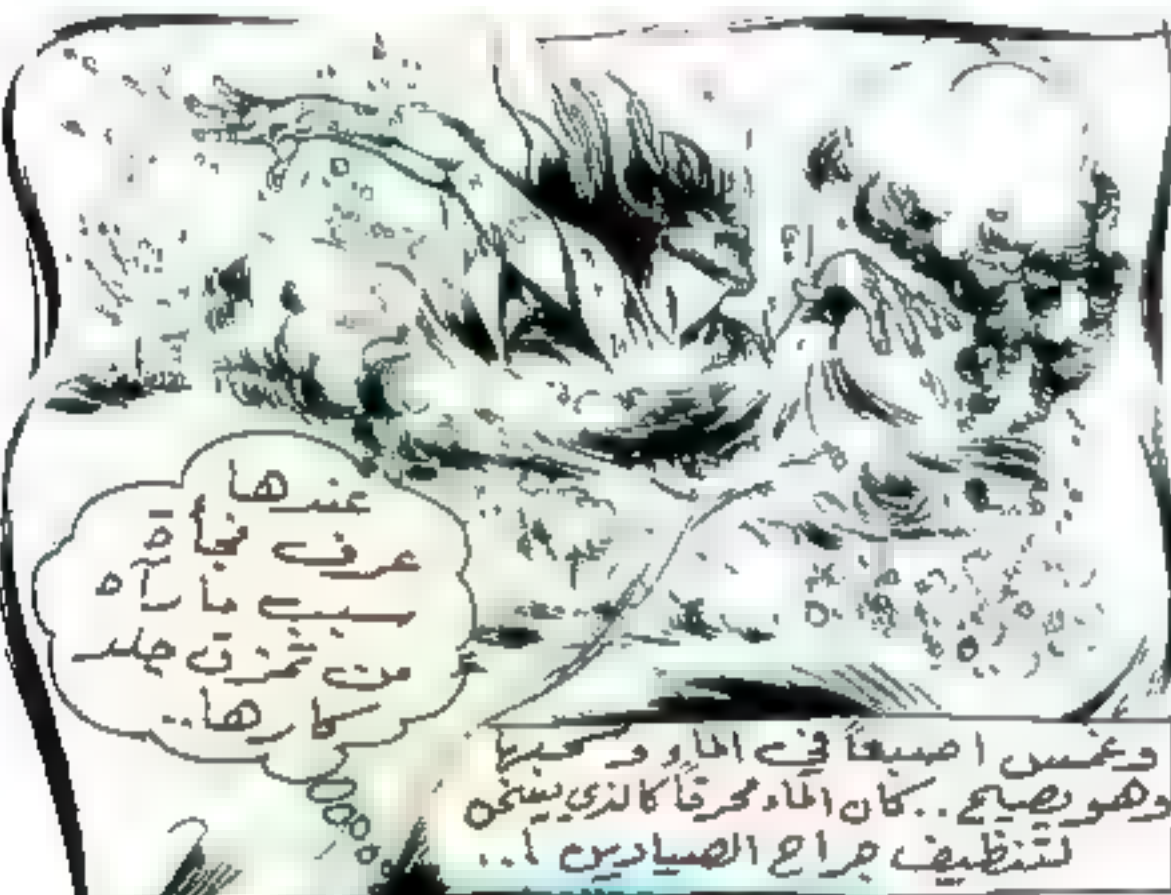 عندها
عرف فجأة
سبب ما رآه
من تمزق جلد
كارها..
وغمس اصبعاً في الماء وسحبها
وهو يصيح.. كان الماء محرقاً كالذي يستخدم
لتنظيف جراح الصيادين!..